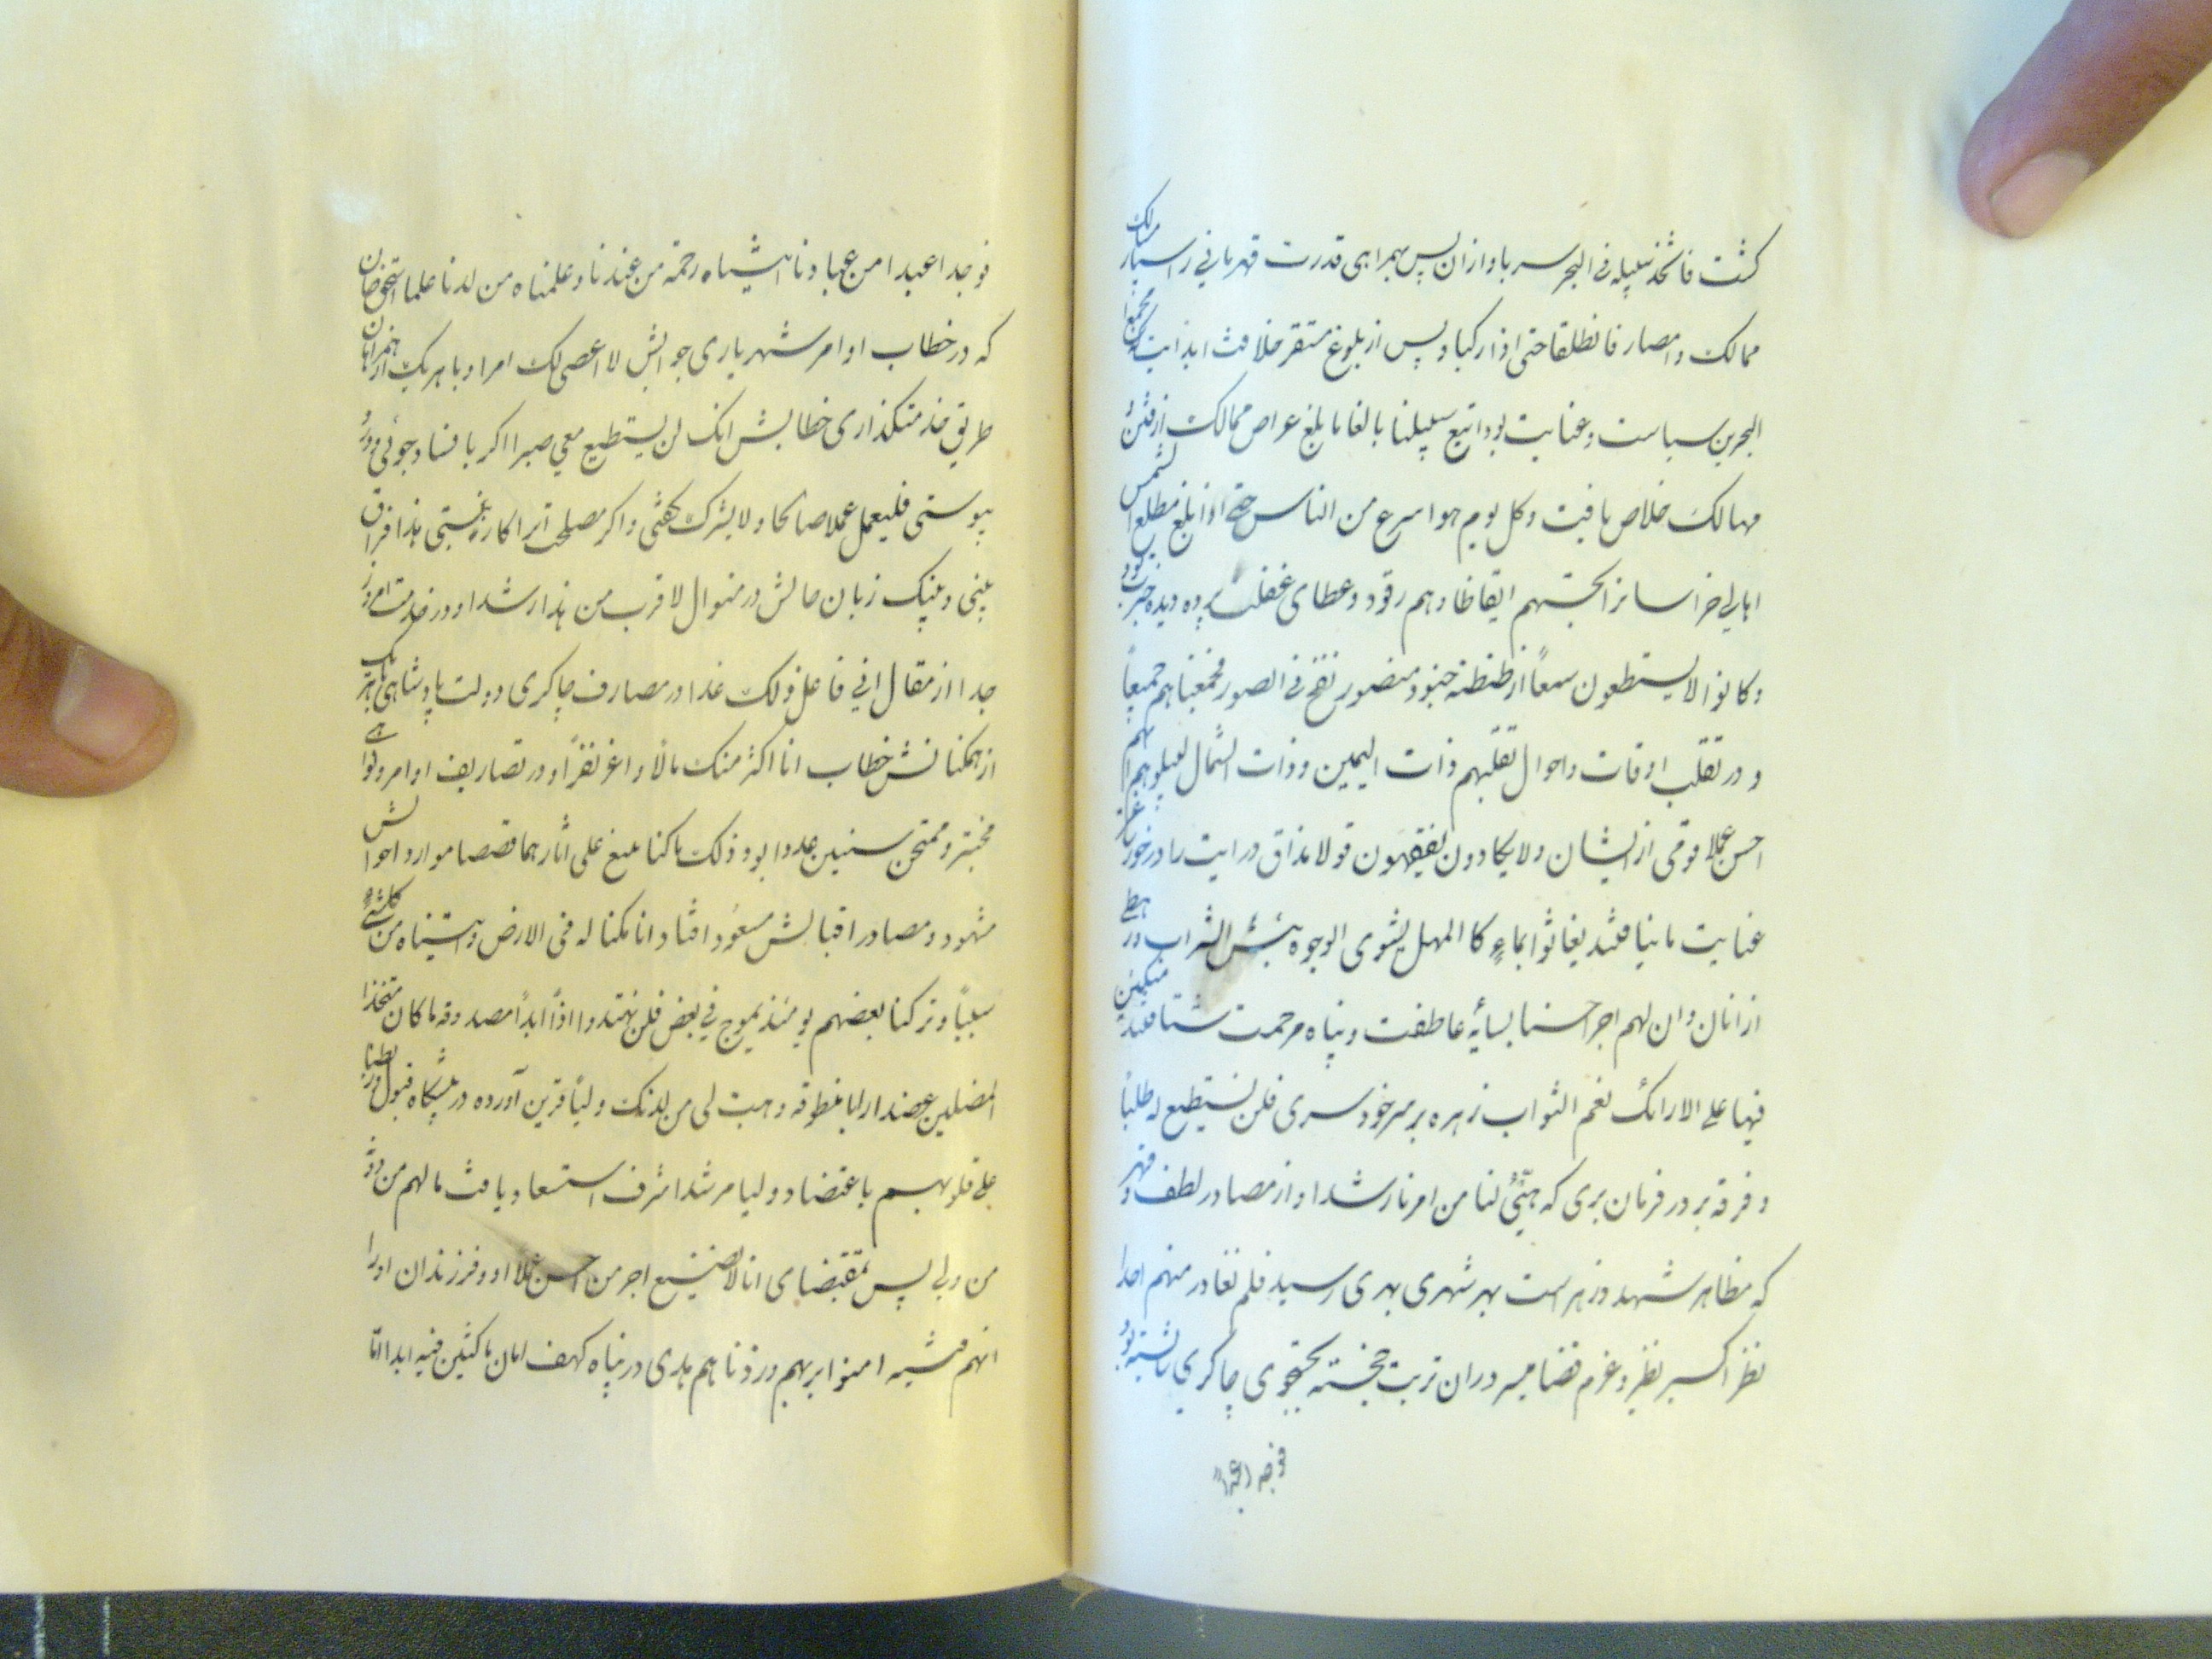 کشت فاتخذ سبیله فی البحر سربا و از ان پس بهمراهی قدرت قهرمانی راسپار مسالک
ممالک و امصار فانطلقا حتی اذا رکبا و پس از بلوغ مستقر خلافت ابد ایت که مجمع
البحرین سیاست و عنایت بود اتبع سبیلنا بالغا ما بلغ عراص ممالک از فتن
مهالک خلاص یافت و کل یوم هو اسرع من الناس حتی اذا بلغ مطلع الشمس
اهالی خراسانرا تحسبهم ایقاظا و هم رقود و غطای غفلت پرده دیده
و کانوا لا یستطعون سمعاً از طنطنه جنود منصور نفخ فی الصور فجمعناهم جمیعاً
و در تقلب اوقات و احوال تقلبهم ذات الیمین و ذات الشمال لیبلوهم ایهم
احسن عملا قومی از ایشان و لا یکادون یفقهون قولا مذاق درایت را در خور
عنایت مانیافتند یغاثوا بماءٍ کا المهل یشوی الوجوه بئس الشراب و رهطی
از انان و ان لهم اجرا حسنا بسایه عاطفت و پناه مرحمت شتافتند متکئین
فیها علی الارائک نعم الثواب زهره بر سر خود سری فلن تستطیع له طلباً
و فرقه بر در فرمان بری که هیّئ لنا من امرنا رشدا و از مصادر لطف و قهر
که مظاهر شهد و زهر است بهر شهری بهری رسید فلم نغادر منهم احدا
نظر اکسیر نظیر و عزم قضا میسر دران تربت خجسته بجستجوی چاکری شایسته بود
فوجدا عبدا
فوجدا عبدا من عبادنا اتیناه رحمة من عندنا و علمناه من لدنا علما اسحق خان
که در خطاب اوامر شهریاری جوابش لا اعصی لک امرا و با هر یک از همراهان
طریق خدمتکذاری خطابش انک لن یستطیع معی صبرا اکر با فساد جوئی
پیوستی فلیعمل عملا صالحا و لا یشرک کفتی و اکر مصلحت را کاره نخستی هذا فراق
بینی و بینک زبان حالش در منوال لاقرب من هذا رشدا و در خدمت امروز
جدا از مقال انی فاعل ذلک غدا در مصارف چاکری دولت پادشاهی با هر یک
از همکنانش خطاب انا اکثر منک مالا و اعز نفراً و در تصاریف اوامر و نواهی
مختبر و ممتحن سنین عددا بود و ذلک ما کنا نبغ علی اثارهما قصصا موارد احوالش
مشهود و مصادر اقبالش مسعود افتاد انا مکنا له فی الارض و اتیناه من کل شیءٍ
سبباً و ترکنا بعضهم یومئذ یموج فی بعض فلن یهتدوا اذاً ابداً مصدوقه ما کان متخذا
المضلین عضدا را با منطوقه و هبت لی من لدنک ولیا قرین آورده در پیشکاه قبول و ربطنا
علی قلوبهم باعتضاد ولیا مرشدا شرف استسعاد یافت ما لهم من دونه
من ولی پس بمقتضای انا لا نضیع اجر من احسن عملا او و فرزندان او را
انهم فتیه امنوا بربهم و زدناهم هدی در پناه کهف امان ماکثین فیه ابدا